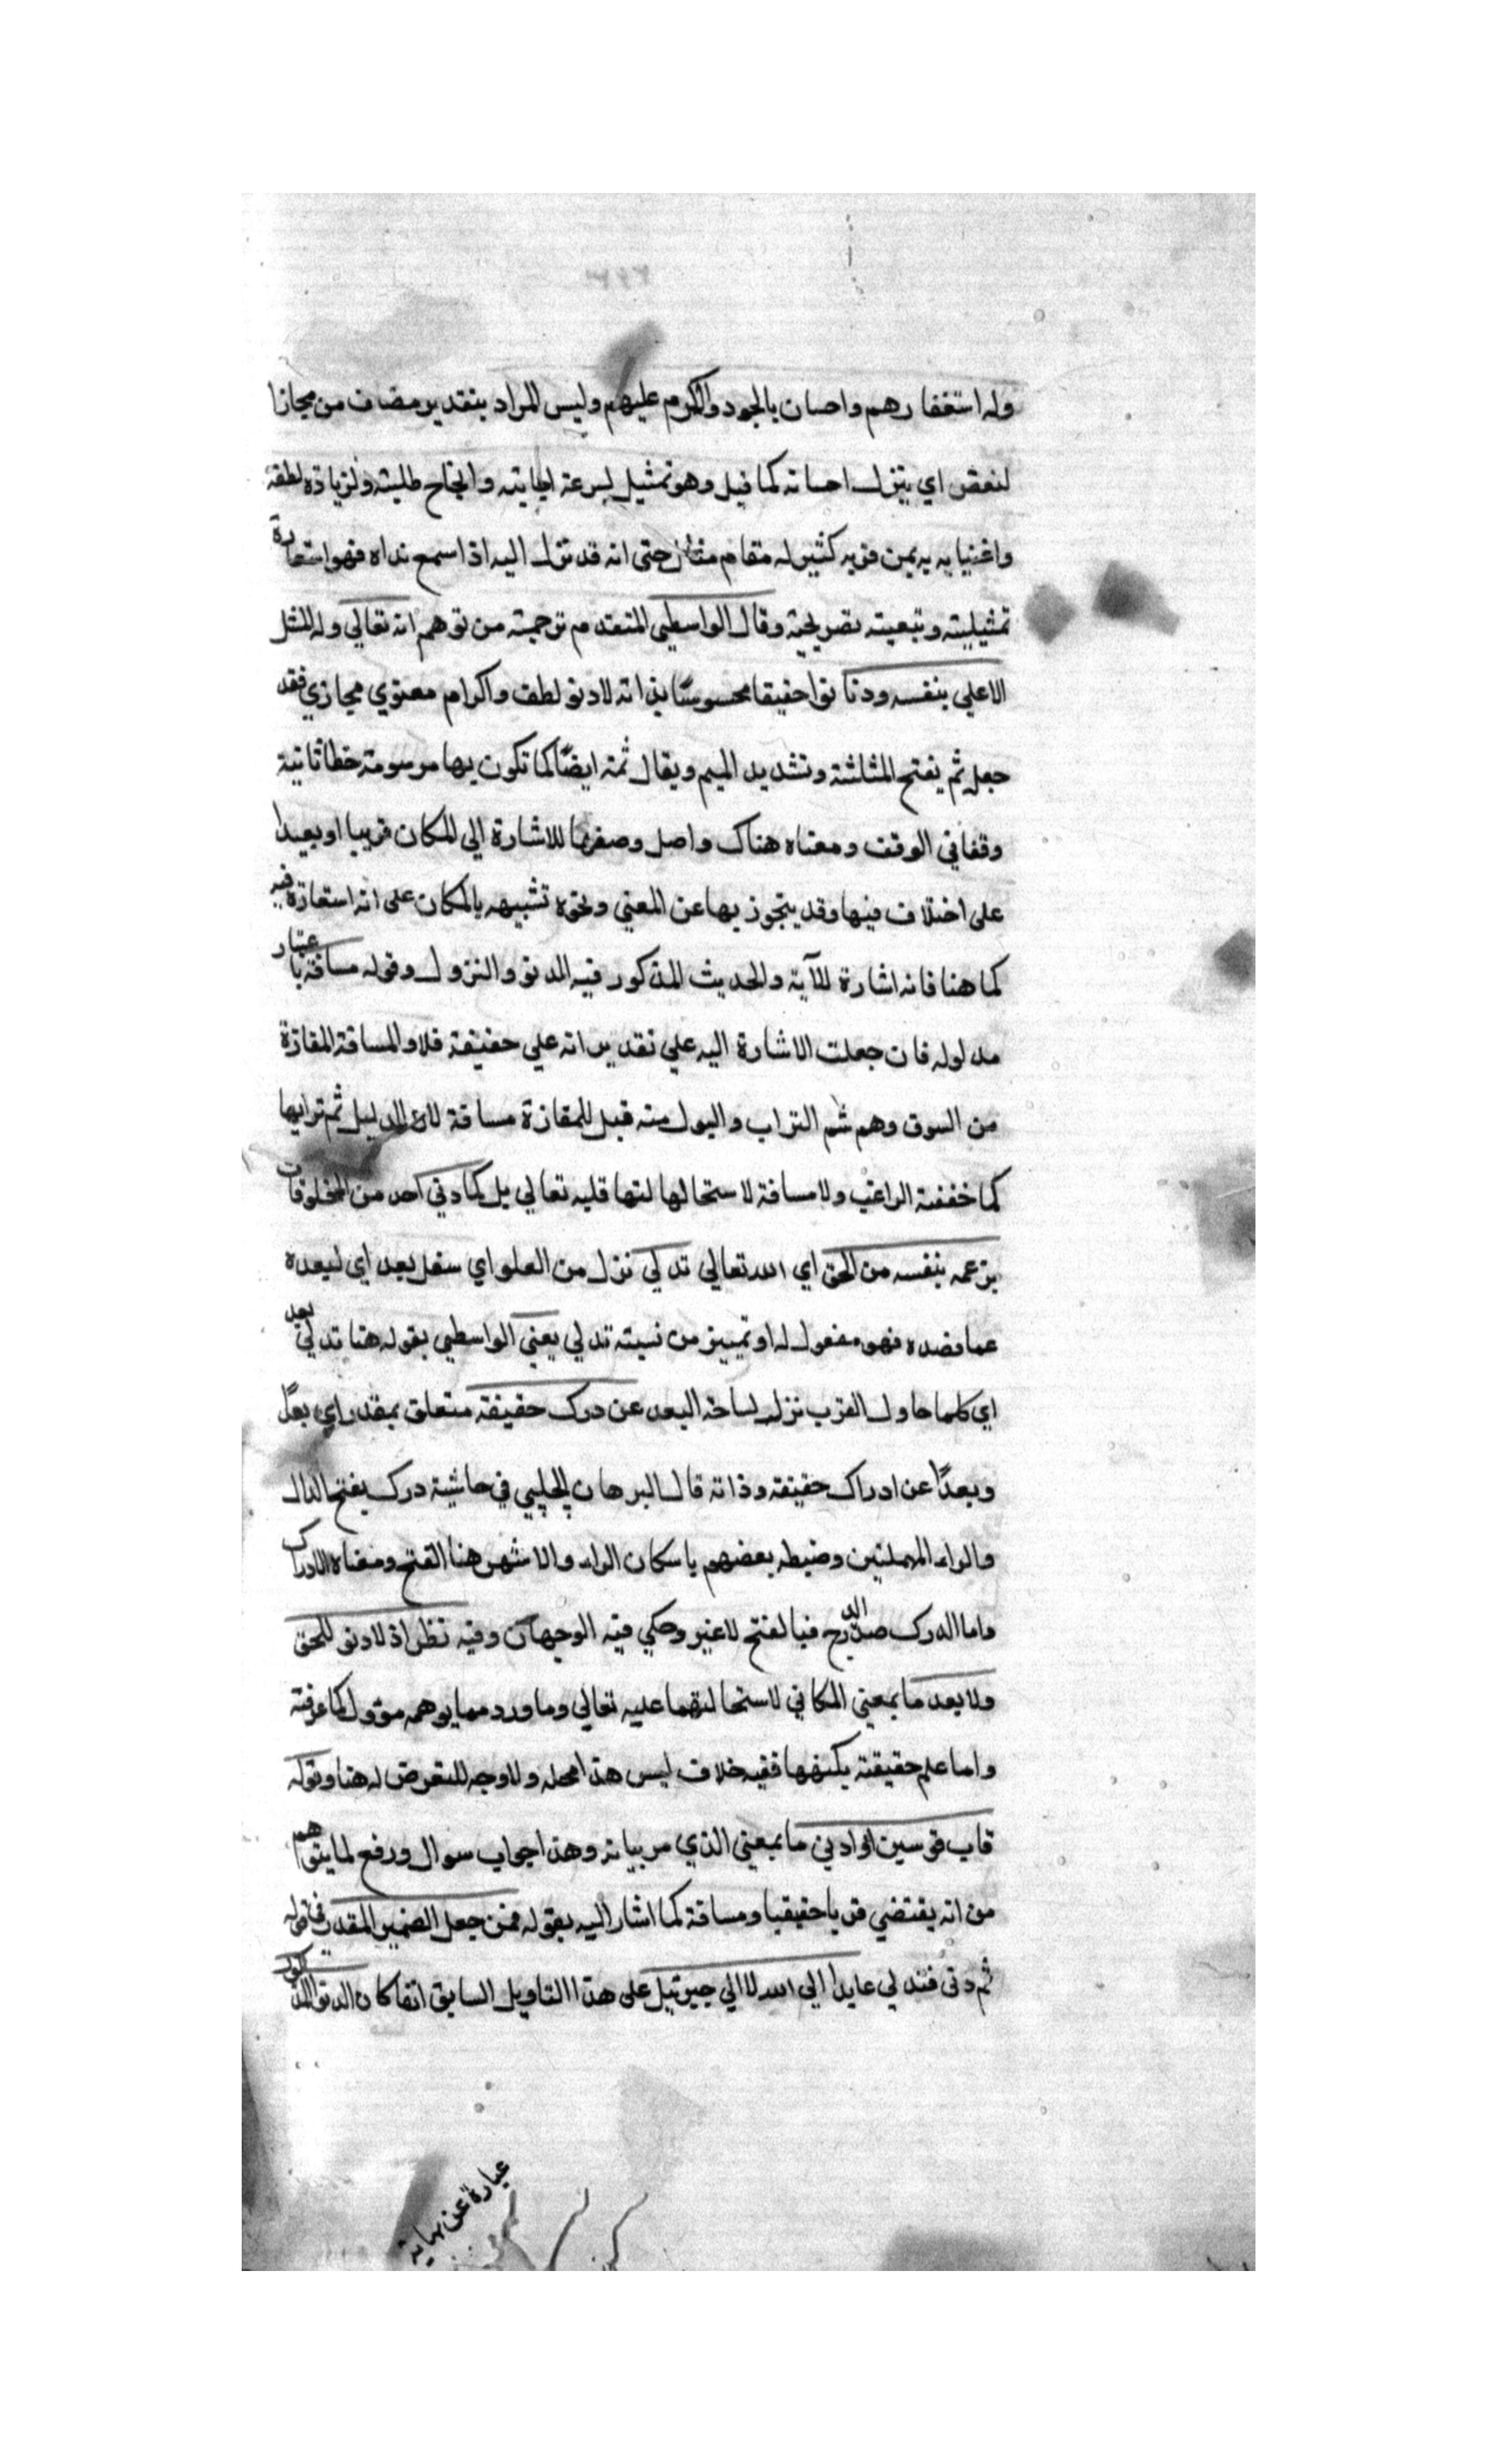 وله استغفارهم واحسان بالجود والكرم عليهم وليس المراد بتقدير مضاف من مجازا
لنقص اي يتنزل احسانه كما قيل وهو تمثيل لسرعة اجابته وانجاح طلبته ولزيادة لطفه
واغنيا به يه بمن قربه كثير له مقام حتى انه قد نزل اليه اذا سمع نداه فهو استعارة
تمثيلية وتبعيته تصريحية وقال الواسطي المتقدم ترجمته من توهم انه تعالي وله المثل
الاعلي بنفسه ودنا نوا حقيقا محسوسا بذاته لادنو لطف واكرام معنوي مجازي فقد
جعل ثم بفتح المثلثة وتشديد الميم ويقال ثمة ايضا كما تكون بها مرسومة خطا ثانية
وقفا في الوقف ومعناه هناك واصل وصفها للاشارة الي المكان قريبا او بعيدا
على اختلاف فيها وقد يتجوز بها عن المعني ونحوه تشبيهه بالمكان على انه استعارة فيه
كما هنا فانه اشارة للآية والحديث المذكور فيه الدنو والنزول وقوله مسافة باعتبار
مدلوله فان جعلت الاشارة اليه علي تقدير انه علي حقيقة فلا والمسافة المفازة
من السوق وهم شم التراب والبول منه قيل للمفازة مسافة لان الدليل ثم ترابها
كما حققه الراغب ولا مسافة لاستحالها لتها قليه تعالي بل كما دني احد من المخلوقات
بزعمه بنفسه من الحق اي الله تعالي تدلي نزل من العلو اي سفل بعد اي لبعده
عما قصده فهو مفعول له او تمييز من نسبته تدلي يعني الواسطي بقوله هنا تدلي بعد
اي كلما حاول القرب نزل لساحة البعد عن درك حقيقة متعلق بمقدر اي بعدًا
وبعدًا عن ادراك حقيقة وذاته قال البرهان الحلبي في حاشية درك بفتح الدال
والراء المهملتين وضبطه بعضهم باسكان الراء والاشهر هنا الفتح ومعناه الادراك
واما الدرك ضد الدرج فبالفتح لاغير وحكي فيه الوجهان وفيه نظر اذ لادنو للحق
ولا بعد ما بمعني المكاني لاستحالتهما عليه تعالي وما ورد مما يوهمه مؤول كما عرفته
واما علم حقيقة بكنهها ففيه خلاف ليس هذا محله ولا وجه للتعرض له هنا وقوله
قاب قوسين او ادني ما بمعني الذي مر بيانه وهذا جواب سوال ورفع لما يتوهم
من انه يقتضي قربا حقيقيا ومسافة كما اشار اليه بقوله فمن جعل الضمير المقدر في قوله
ثم دنى فتدلي عايدا الي الله لا الي جبريئيل على هذا التاويل السابق انفا كان الدنو
عبارة عن نهاية